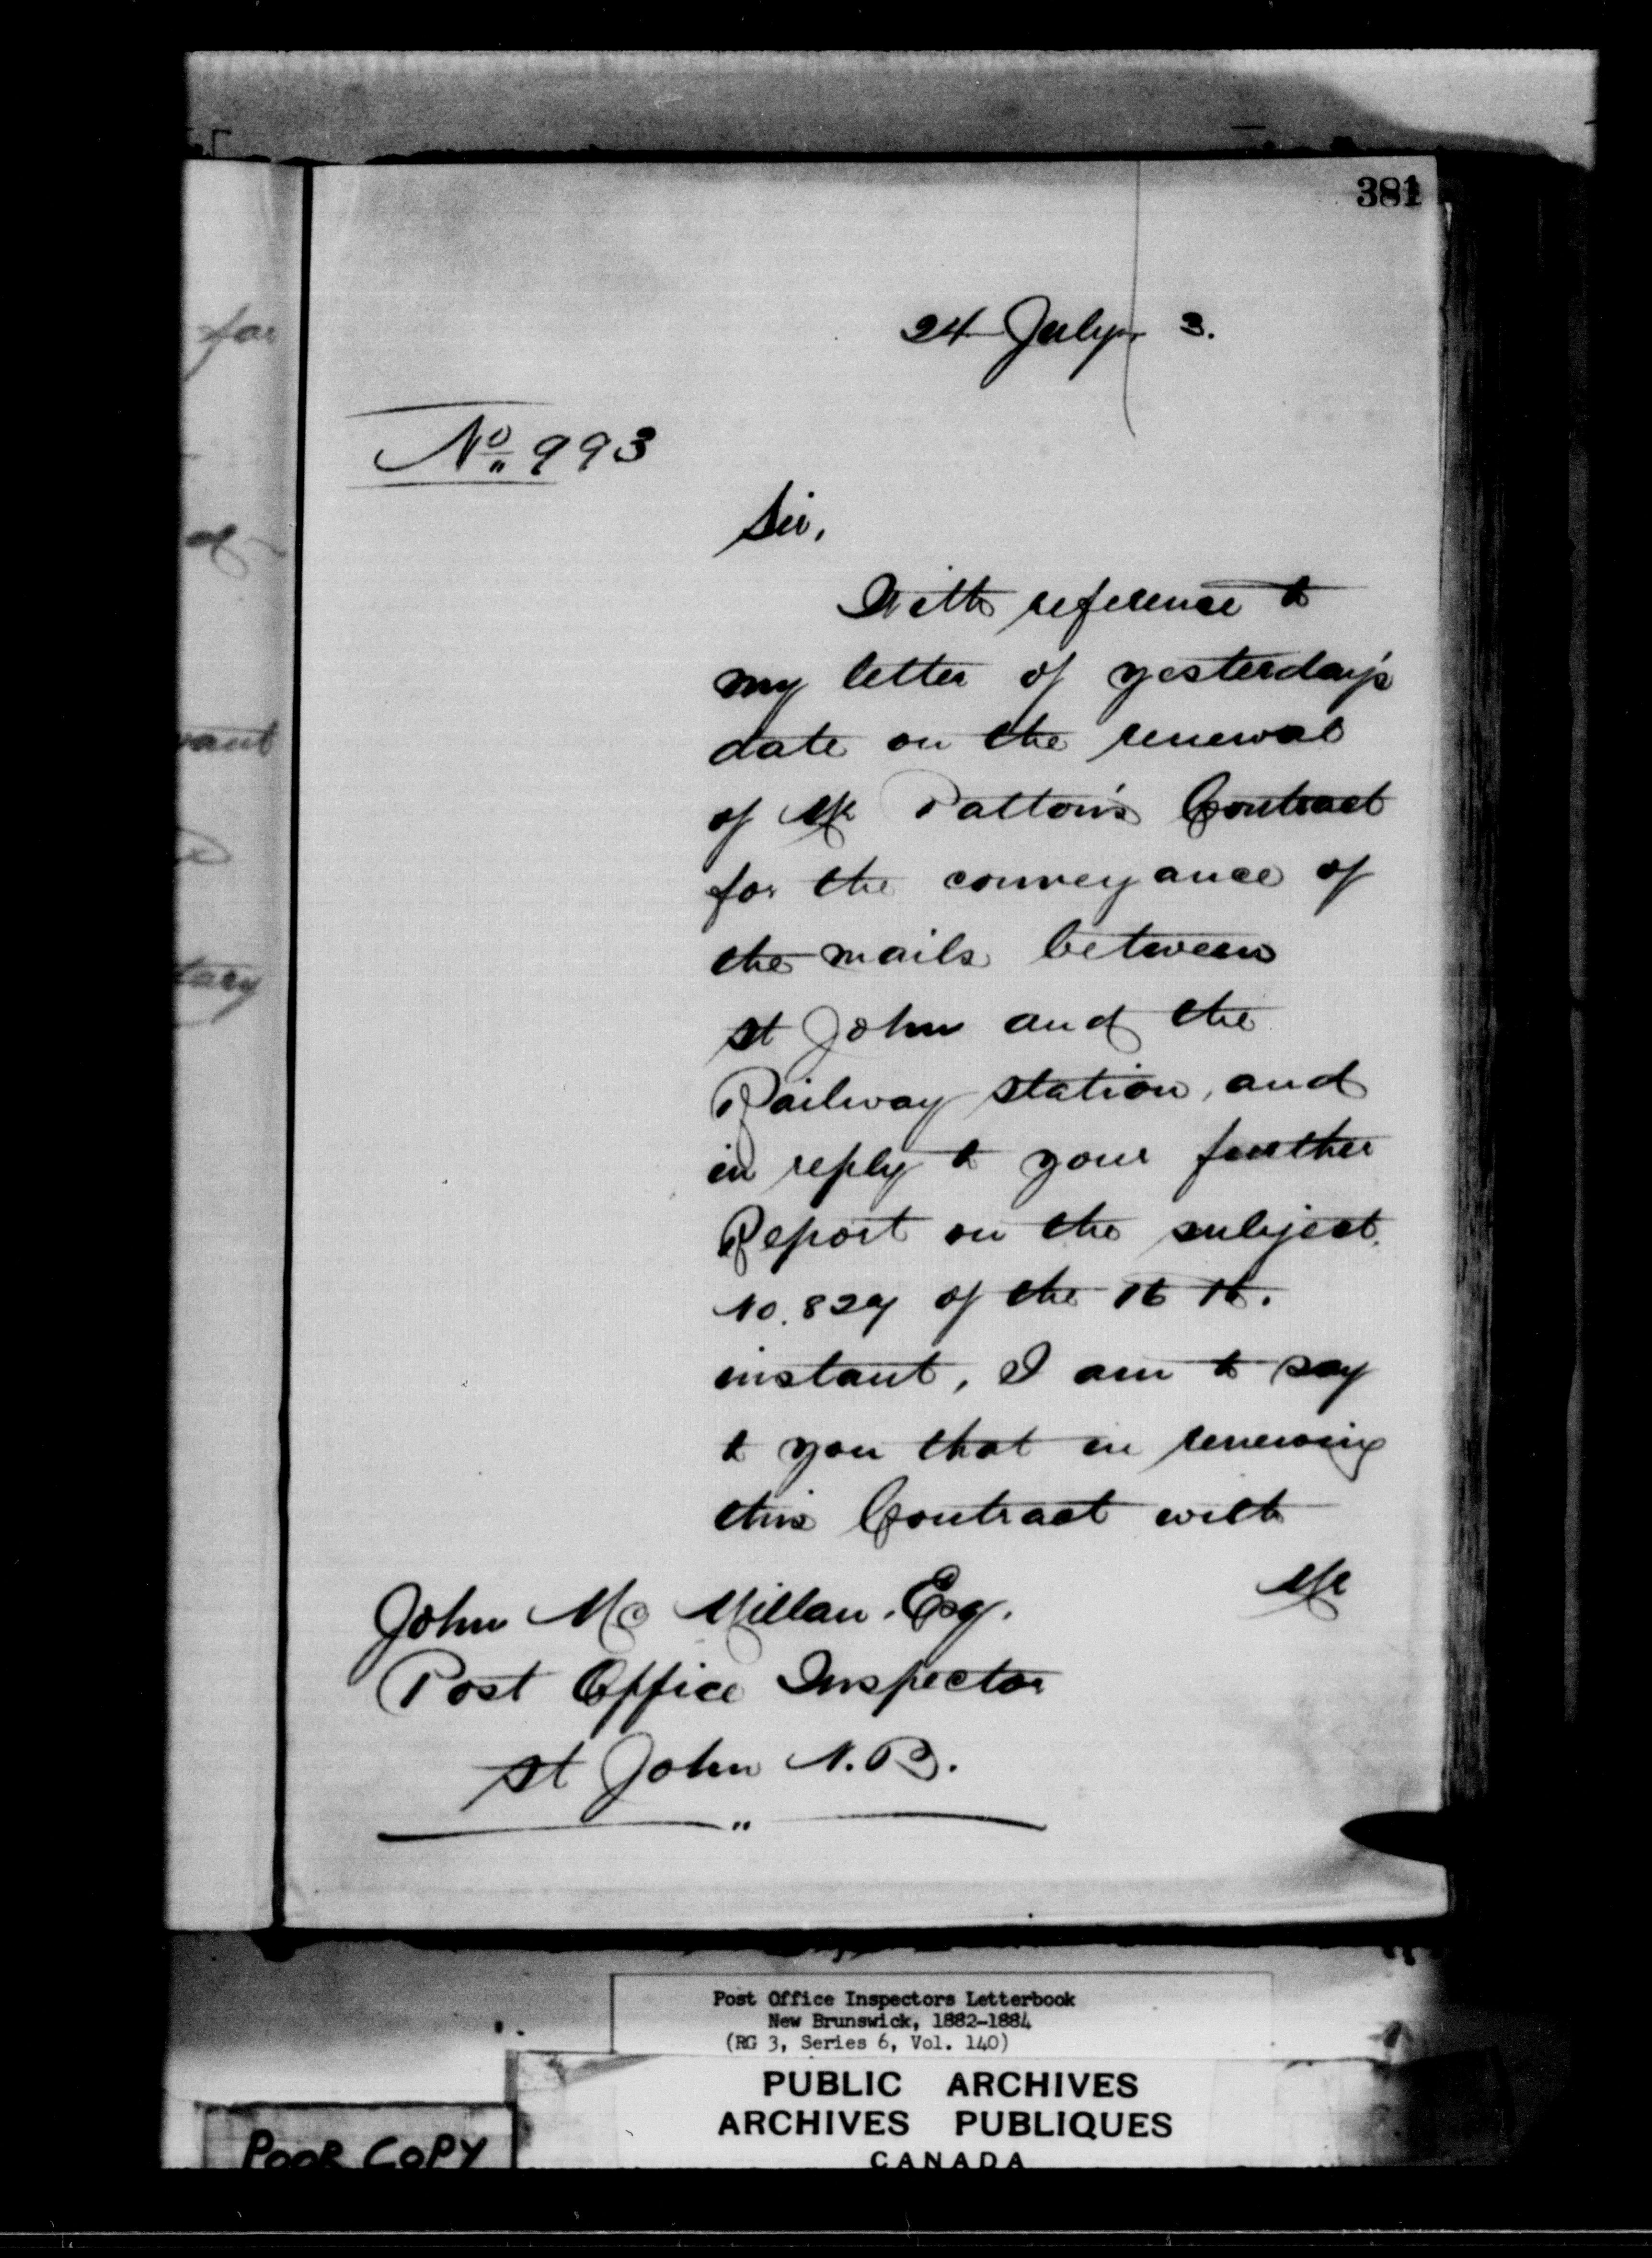 381
24 July 3.
No 993
Sir,
With reference to
my letter of yesterday's
date on the renewal
of Mr Patton's Contract
for the conveyance of
the mails between
St John and the
Railway station, and
in reply to your further
Report on the subject.
No. 829 of the 16th.
instant, I am to say
to you that in renewing
this Contract with
Mr
John Mc Millan. Esq.
Post Office Inspector
St John N.B.
for
of
vant
tary
Post Office Inspectors Letterbook
New Brunswick, 1882-1884
(RG 3, Series 6, Vol. 140)
PUBLIC ARCHIVES
ARCHIVES PUBLIQUES
CANADA
POOR COPY